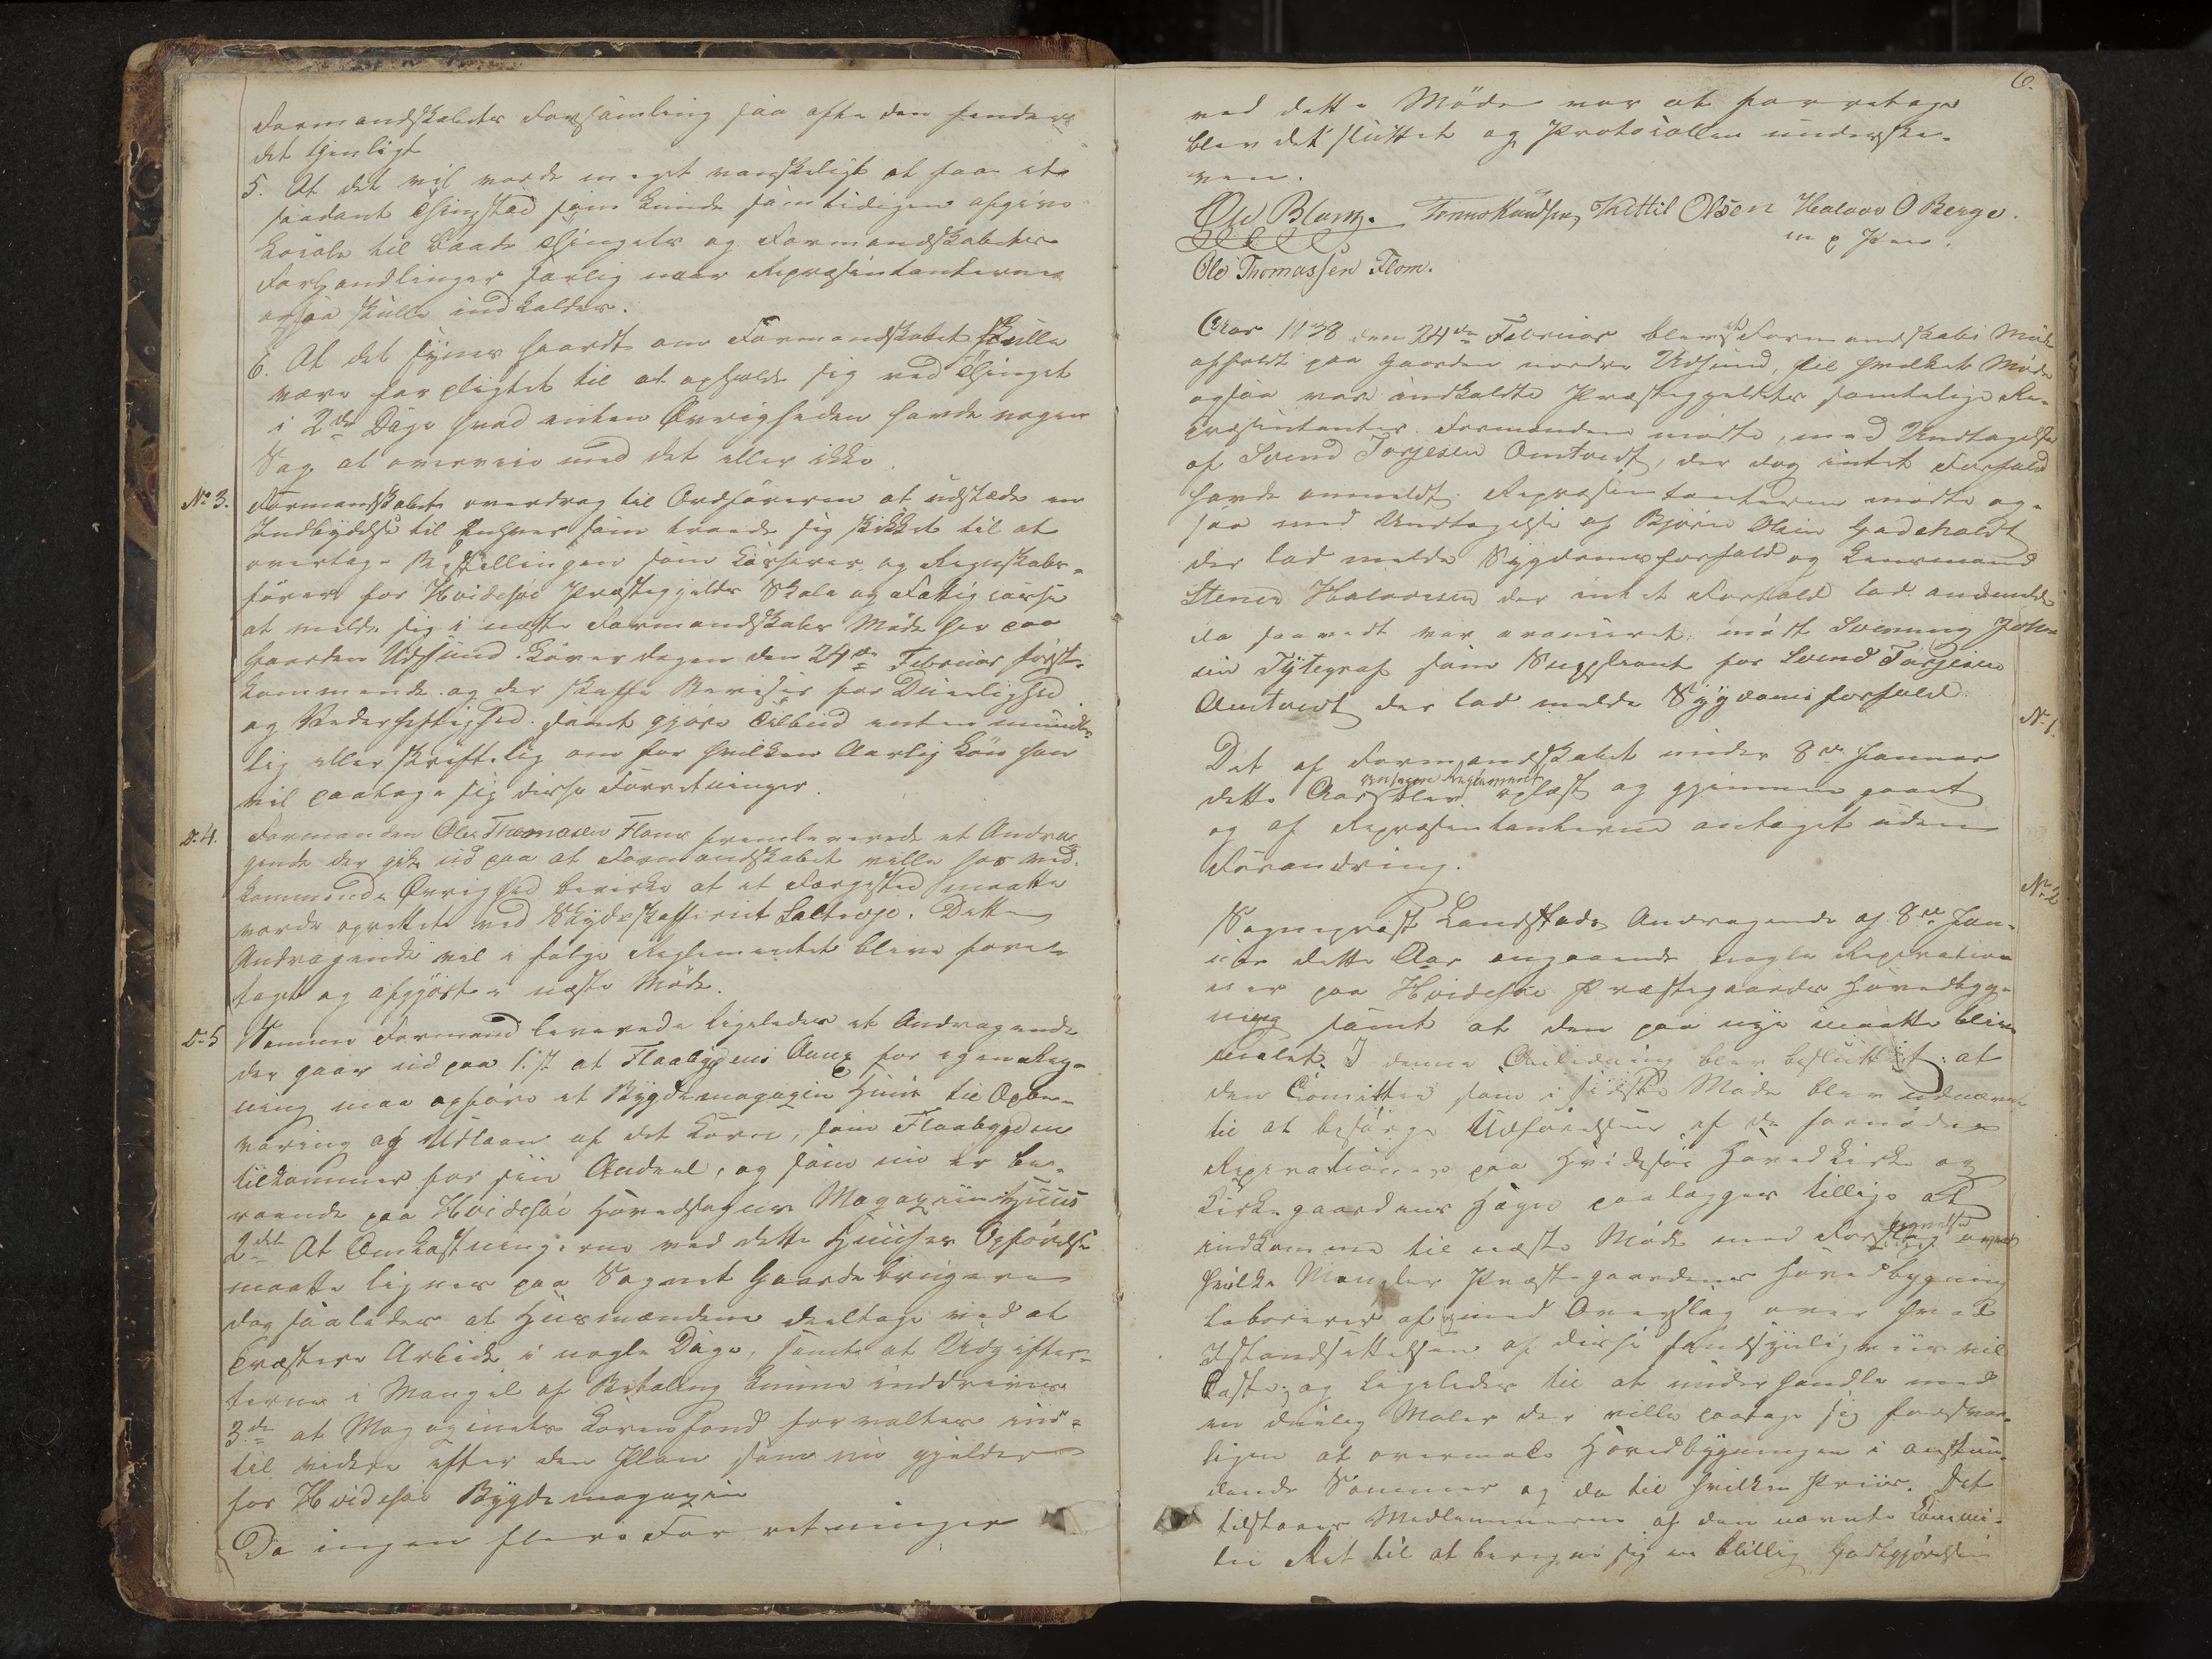 Formandskabets Forsamling saa ofte den finder
det tjenligt
5. At det vil vorde meget vanskeligt at faae et
saadant Thingsted som kunde samtidigen afgive
Locale til baade Thingets og Formandskabets
Forhandlinger særlig naar Repræsentanterne
ogsaa skulle indkaldes.
6. At det synes haardt om Formandskabet skulle
være forpligtet til at opholde sig ved Thinget
i 2de Dage hvad enten Øvrigheden havde nogen
Sag at overveie med det eller ikke.
No 3. Formandskabet overdrog til Ordføreren at udstæde en
Indbydelse til Enhver som troede sig skikket til at
overtage Bestillingen som Casserer og Regnskabs-
fører for Hvidesøe Præstegjelds Skole og Fattigcasse
at melde sig i næste Formandskabs Møde her paa
Gaarden Udsund Løverdagen den 24de Februar først-
kommende og der skaffe Beviser for Duelighed
og Vederheftighed samt gjøre Tilbud enten mundt-
lig eller skriftlig om for hvilken Aarlig Løn han
vil paatage sig disse Forretninger.
D: 4. Formanden Ole Thomasen Flom fremleverede et Andra-
gende der gik ud paa at Formandskabet ville hos ved-
kommende Øvrighed bevirke at et Færgested maatte
vorde oprettet ved Skydsskafferiet Saltvoje. Dette
Andragende vil i følge Reglementet blive fore-
taget og afgjort i næste Møde.
D: 5 Samme Formand leverede ligeledes et Andragende
der gaar ud paa 1.st at Flaabygdens Annex for egen Reg-
ning maa opføre et Bygdemagazin Huus til Opbe-
varing og Udlaan af det Korn, som Flaabygden
tilkommer for sin Andeel, og som nu er be-
roende paa Hvidesøe Hovedsogns Magaziin Huus
2det At Omkostningerne ved dette Huuses Opførelse
maatte lignes paa Sognets Gaardebrugere
dog saaledes at Husmændene deeltage ved at
præstere Arbeide i nogle Dage, samt at Udgifter-
terne i Mangel af Betaling kunne inddrives
3de at Magazinets Kornfond forvaltes ind-
til videre efter den Plan som nu gjelder
for Hvidesøe Bygdemagazin
Da ingen flere Forretninger
6.
ved dette Møde var at foretage
blev det sluttet og Protocollen underskre-
ven.
Ole Blom. Tønnes Knudsen Kittil Olsen Halvor O Berge.
m p Pen.
Ole Thomassen Flom.
Aar 1838 den 24de Februar blev et Formandskabs Møde
afholdt paa Gaarden nordre Udsund, til hvilket Møde
ogsaa vare indkaldte Præstegjeldets samtelige Re-
præsentanter. Formændene mødte, med Undtagelse
af Svend Torjesen Omtvedt, der dog intet Forfald
havde anmeldt. Repræsentanterne mødte og-
saa med Undtagelse af Bjørn Olsen Gadeholdt
der lod melde Sygdomsforfald og Lensmand
Stener Halvorsen der intet Forfald lod anmelde
da saavidt var avanceret, mødte Svenning Joh-
sen Tytegraf som Suppleant for Svend Torjesen
Omtvedt der lod melde Sygdomsforfald.
No 1.
Det af Formandskabet under 8de Januar
dette Aar blev oplæst og gjennemgaaet
og af Repræsentanterne antaget uden
Forandring.
No 2
Sognepræst Landstads Andragende af 8de Jan-
uar dette Aar angaaende nogle Reperation-
er paa Hvidesøe Præstegaards Hovedbyg-
ning samt at den paa nye maatte blive
malet. I denne Anledning blev besluttet: at
den Comittee som i sidste Møde blev udnævnt
til at besørge Udførelsen af de fornødne
Reperationer paa Hvidesøe Hovedkirke og
Kirkegaardens Hægn paalægges tillige at
indkomme til næste Møde med Forslag over
hvilke Mangler Præstegaardens Hovedbygning
laborerer af med Overslag over hvad
Istandsættelsen af disse sandsynligviis vil
koste; og ligeledes til at underhandle med
en duelig Maler der ville paatage sig forsvar-
ligen at overmale Hovedbygningen i anstun-
dende Sommer og da til hvilken Priis. Det
tilstaaes Medlemmerne af den nævnte Commi-
tee Ret til at beregne sig en billig Godtgjørelse